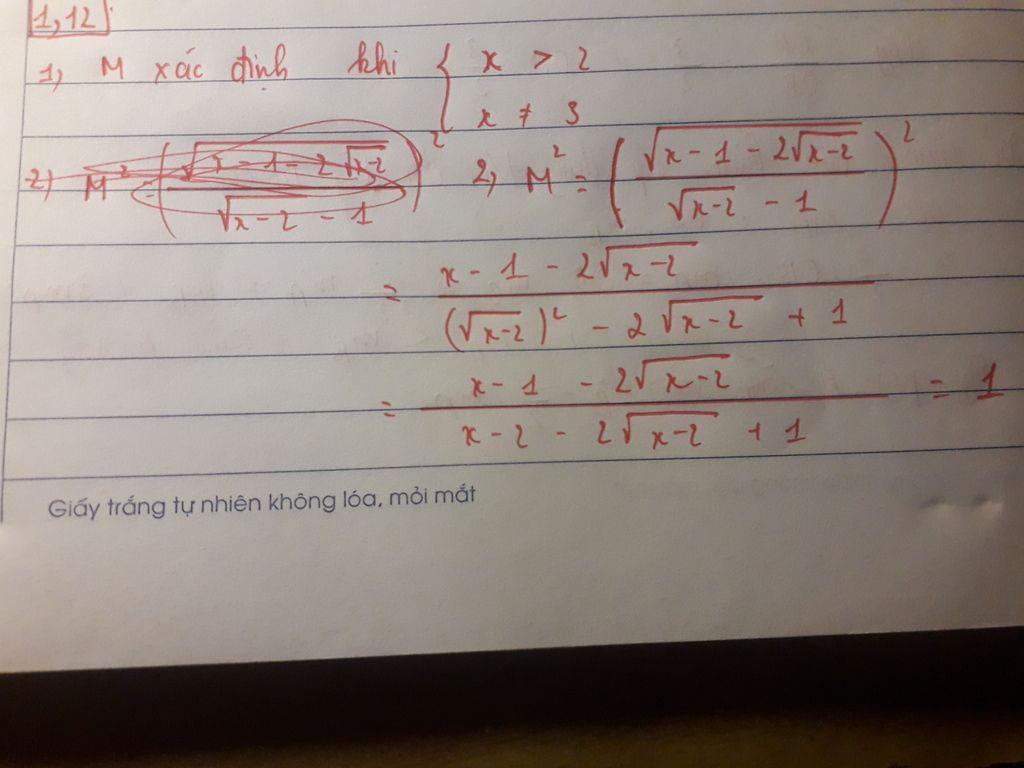 1,12
1, M xác định khi { x > 2
x ≠ 3
2) M² = (√(x-1-2√(x-2)) / (√(x-2) - 1))² 2, M² = (√(x-1-2√(x-2)) / (√(x-2) - 1))²
= (x - 1 - 2√(x-2)) / ((√(x-2))² - 2√(x-2) + 1)
= (x - 1 - 2√(x-2)) / (x - 2 - 2√(x-2) + 1) = 1
Giấy trắng tự nhiên không lóa, mỏi mắt